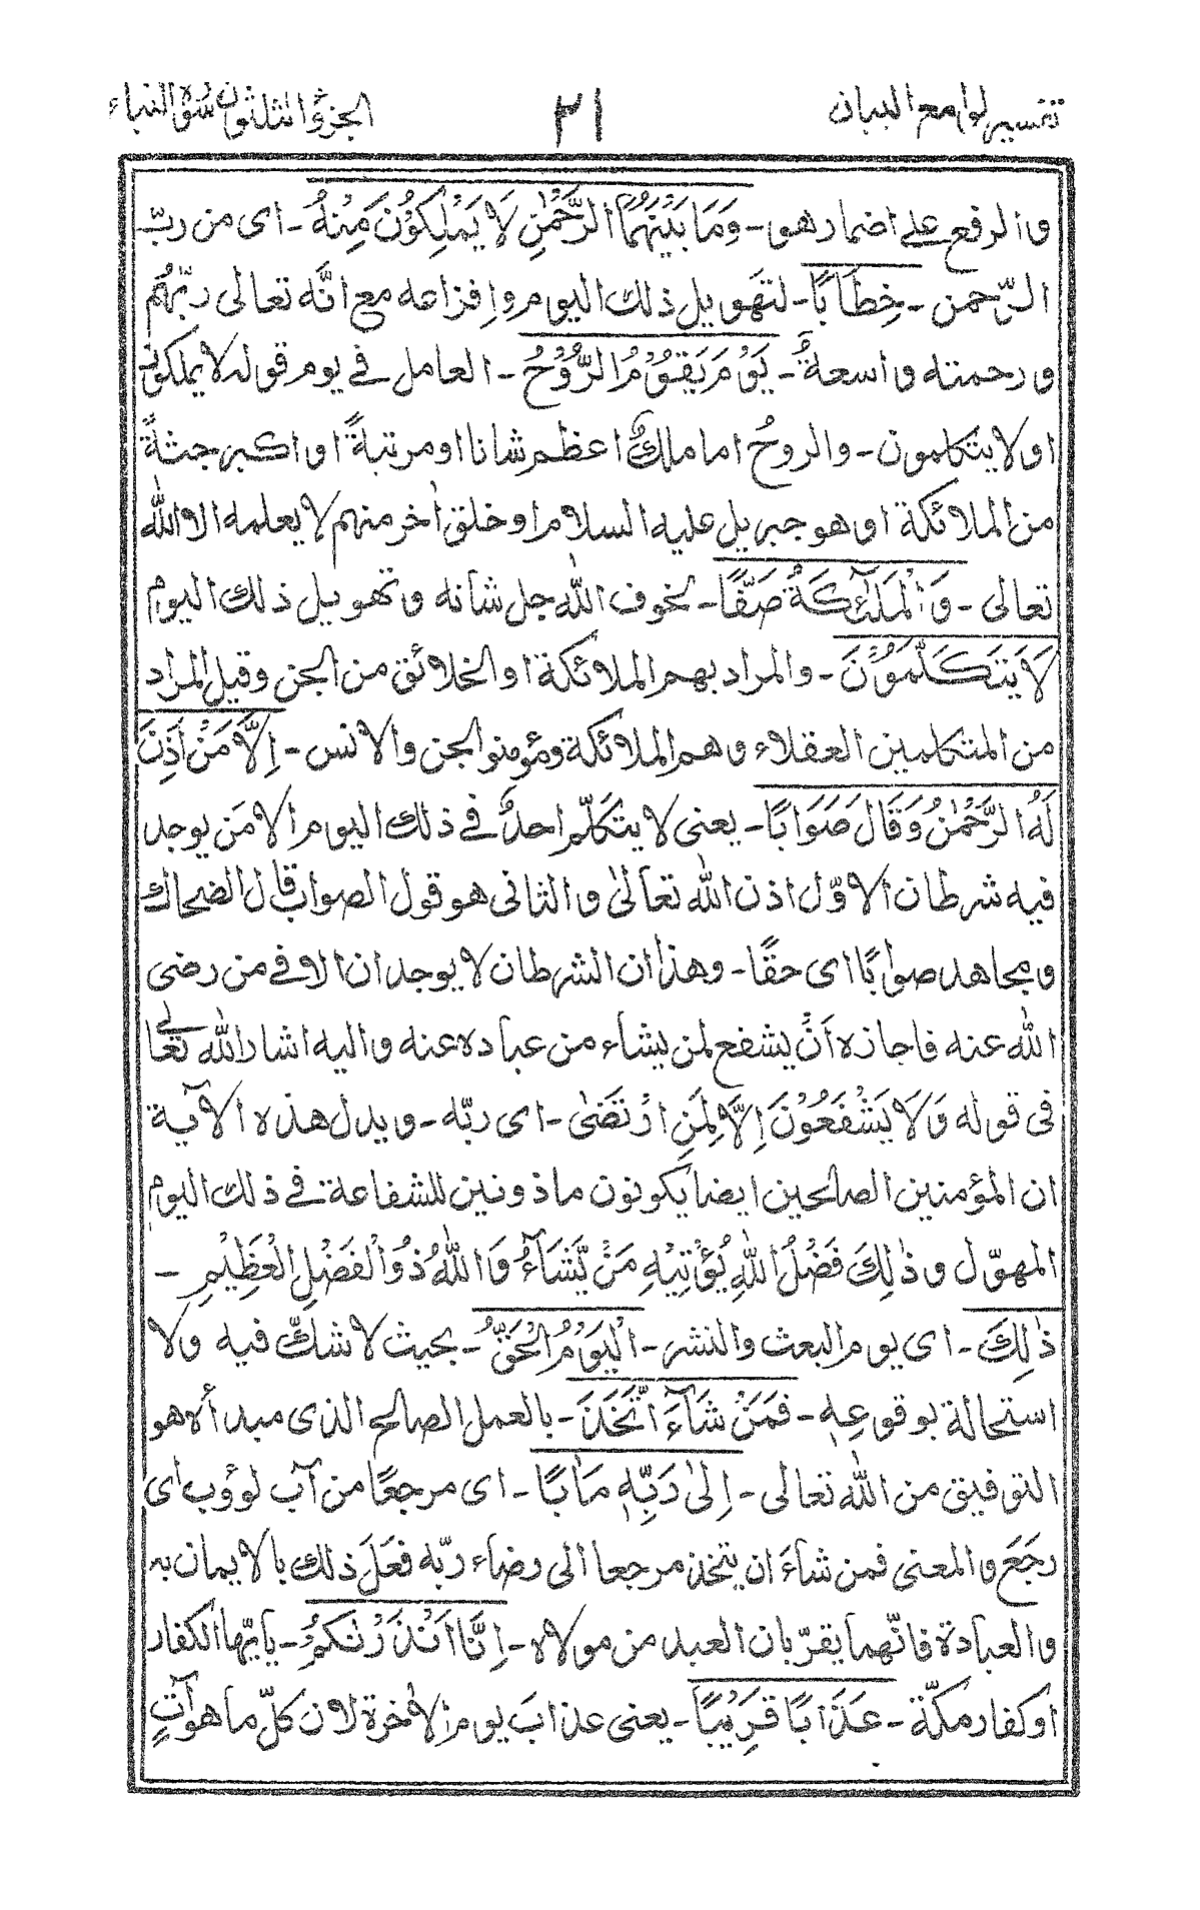 تفسير لوامع البيان ٢١ الجزؤ الثلثون سورة النباء
و الرفع على اضمار هو - وَمَا بَيْنَهُمَا الرَّحْمٰنِ لَا يَمْلِكُوْنَ مِنْهُ - اى من ربّ
الرّحمن - خِطَابًا - لتهويل ذلك اليوم و اِفزاعه مع انّه تعالى ربّهُم
و رحمته و اسعةٌ - يَوْمَ يَقُوْمُ الرُّوْحُ - العامل فى يوم قوله لا يملكون
او لا يتكلمون - والروحُ اما ملكٌ اعظم شانا او مرتبةً او اكبر جثةً
من الملائكة او هو جبريل عليه السلام او خلق اٰخر منهم لا يعلمه الا الله
تعالى - وَ الْمَلٰٓئِكَةُ صَفًّا - لخوف الله جل شأنه و تهويل ذلك اليوم
لَا يَتَكَلَّمُوْنَ - والمراد بهم الملائكة او الخلائق من الجن وقيل المراد
من المتكلمين العقلاء و هم الملائكة ومؤمنو الجن والانس - اِلَّا مَنْ اَذِنَ
لَهُ الرَّحْمٰنُ وَقَالَ صَوَابًا - يعنى لا يتكلّم احدٌ فى ذلك اليوم الا مَن يوجد
فيه شرطان الاوّل اذن الله تعالىٰ و الثانى هو قول الصواب قال الضحاك
و مجاهد صوابًا اى حقًا - وهذان الشرطان لا يوجد ان الا فى من رضى
الله عنه فاجازه اَنْ يشفع لمن يشاء من عباده عنه و اليه اشار الله تعالى
فى قوله وَ لَا يَشْفَعُوْنَ اِلَّا لِمَنِ ارْتَضٰى - اى ربّه - و يدل هذه الآية
ان المؤمنين الصالحين ايضا يكونون ماذونين للشفاعة فى ذلك اليوم
المهوّل و ذٰلِكَ فَضْلُ اللّٰهِ يُؤْتِيْهِ مَنْ يَّشَآءُ وَ اللّٰهُ ذُو الْفَضْلِ الْعَظِيْمِ -
ذٰلِكَ - اى يوم البعث والنشر - الْيَوْمُ الْحَقُّ - بحيث لا شكّ فيه ولا
استحالة بوقوعهٖ - فَمَنْ شَآءَ اتَّخَذَ - بالعمل الصالح الذى مبدأه هو
التوفيق من الله تعالى - اِلىٰ رَبِّهٖ مَاٰبًا - اى مرجعًا من آب لوؤب اى
رجَعَ و المعنى فمن شاءَ ان يتخذ مرجعا الى رضاء ربّه فعَلَ ذلك بالايمان به
و العبادة فانّهما يقرّبان العبد من مولاه - اِنَّا اَنْذَرْنٰكُمْ - يايّها الكفار
او كفار مكّة - عَذَابًا قَرِيْبًا - يعنى عذابَ يوم الاٰخرة لان كلّ ما هو اٰتٍ